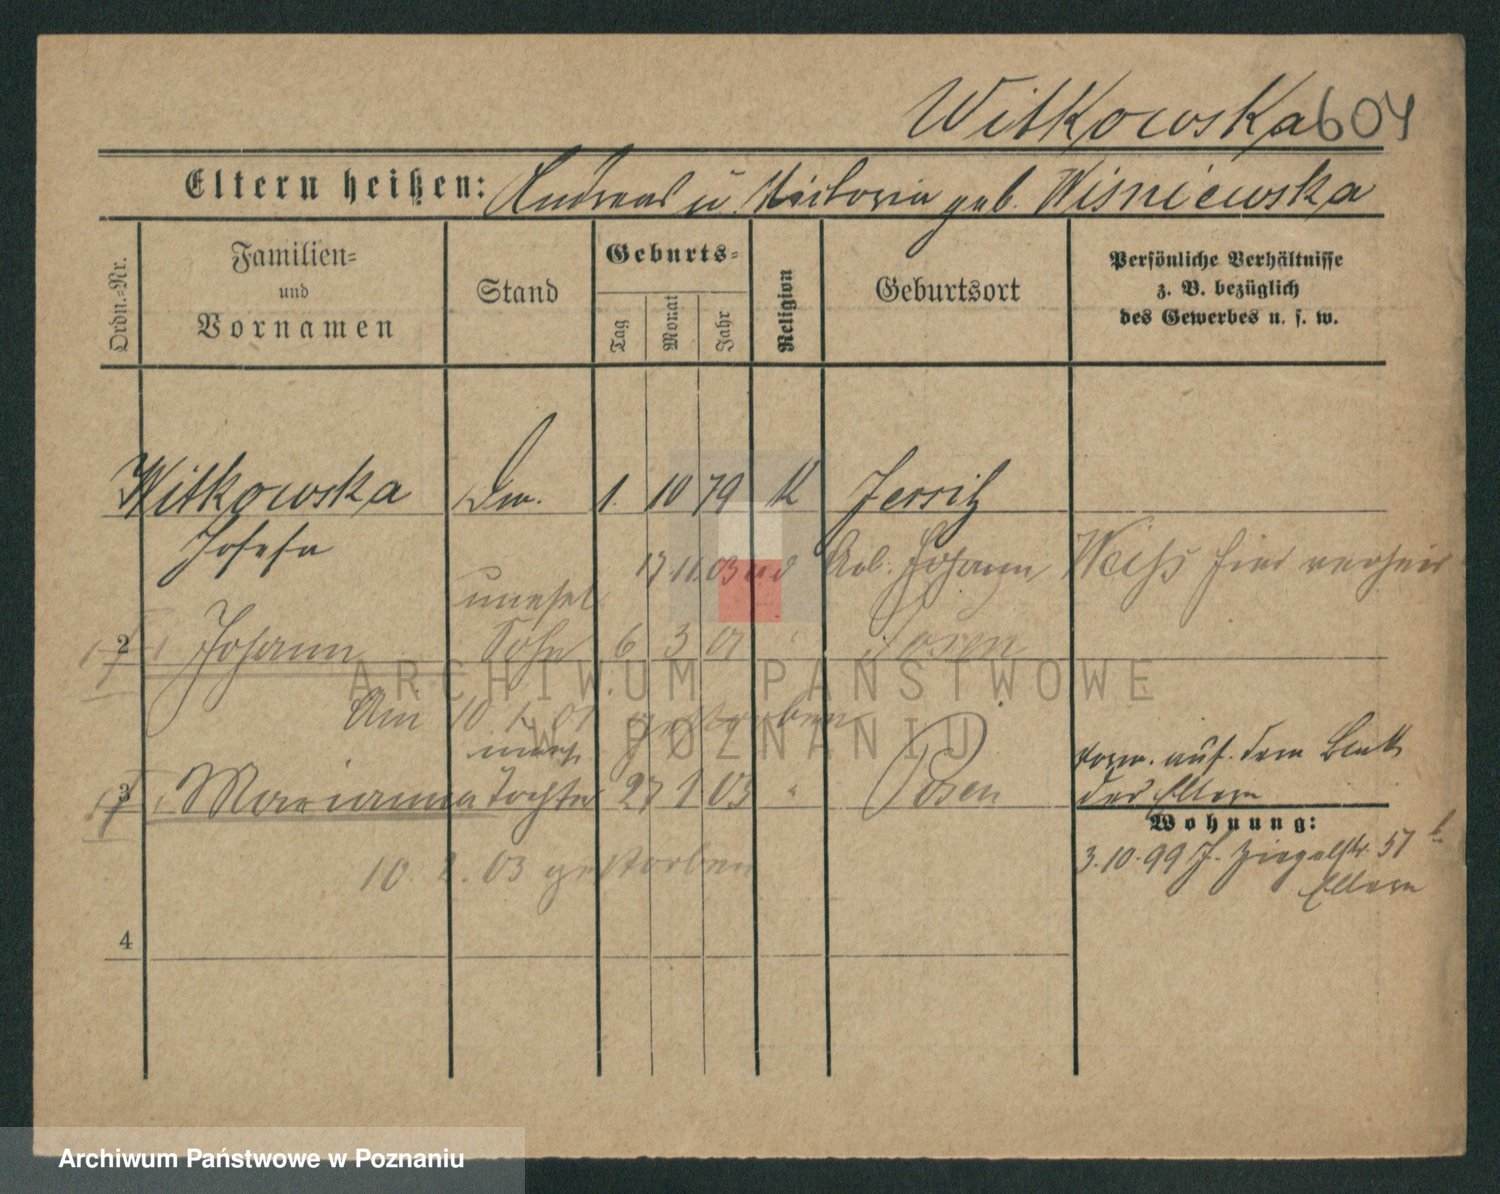 Witkowska 604
Eltern heißen: Andreas u. Victoria geb. Wisniewska
Ordn.-Nr.
Familien-
und
Vornamen
Stand
Geburts-
Tag
Monat
Jahr
Religion
Geburtsort
Persönliche Verhältnisse
z. B. bezüglich
des Gewerbes u. s. w.
Witkowska 1. 10 79 K Jersitz
Josefa
17.11.03 Arb. Johann Weiss hier
unehel
2 Johann Sohn 6 3 01 Posen
Am 10 01 gestorben
unehl
3 Marianna Tochter 27 1 03 " Posen
vorn. auf. dem Blatt
der Eltern
Wohnung:
3.10.99 J. Ziegelstr. 57
Eltern
10. 2. 03 gestorben
4
ARCHIWUM PAŃSTWOWE
W POZNANIU
Archiwum Państwowe w Poznaniu